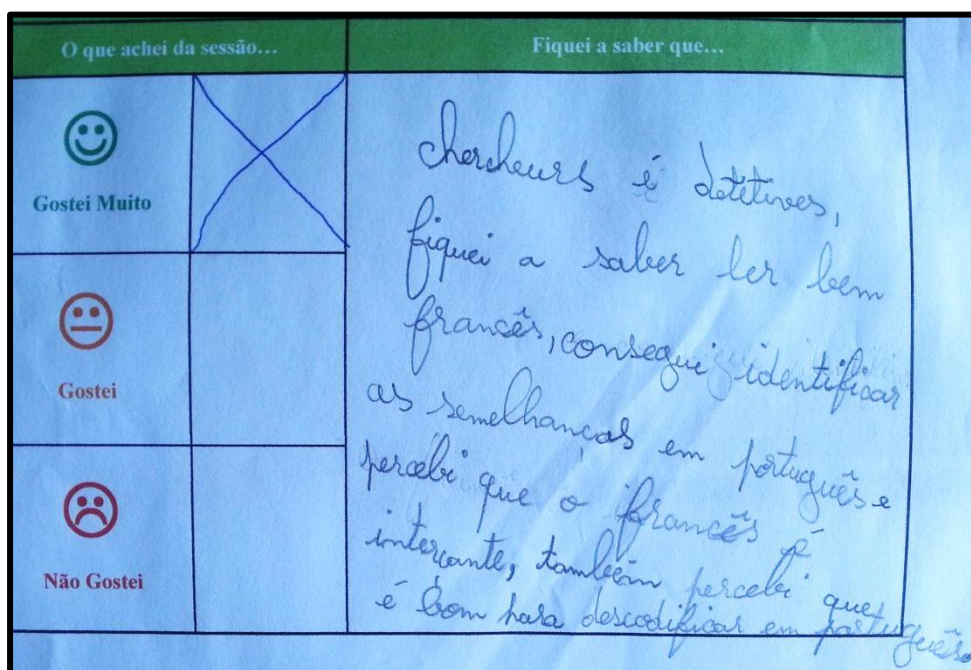 O que achei da sessão...
Fiquei a saber que...
Gostei Muito
Gostei
Não Gostei
chercheurs é detetives,
fiquei a saber ler bem
francês, consegui identificar
as semelhanças em português e
percebi que o francês é
interçante, também percebi que
é bom para descodificar em português